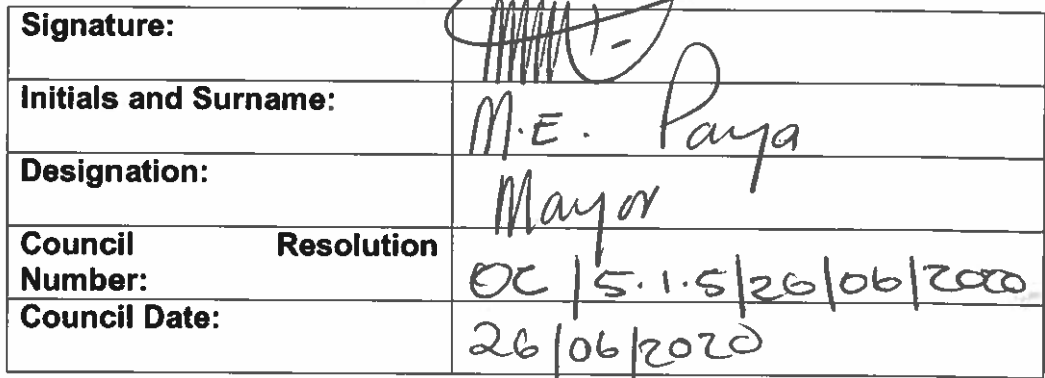 Signature:
Initials and Surname: M.E. Paya
Designation: Mayor
Council Resolution
Number: OC/5.1.5/26/06/2020
Council Date: 26/06/2020